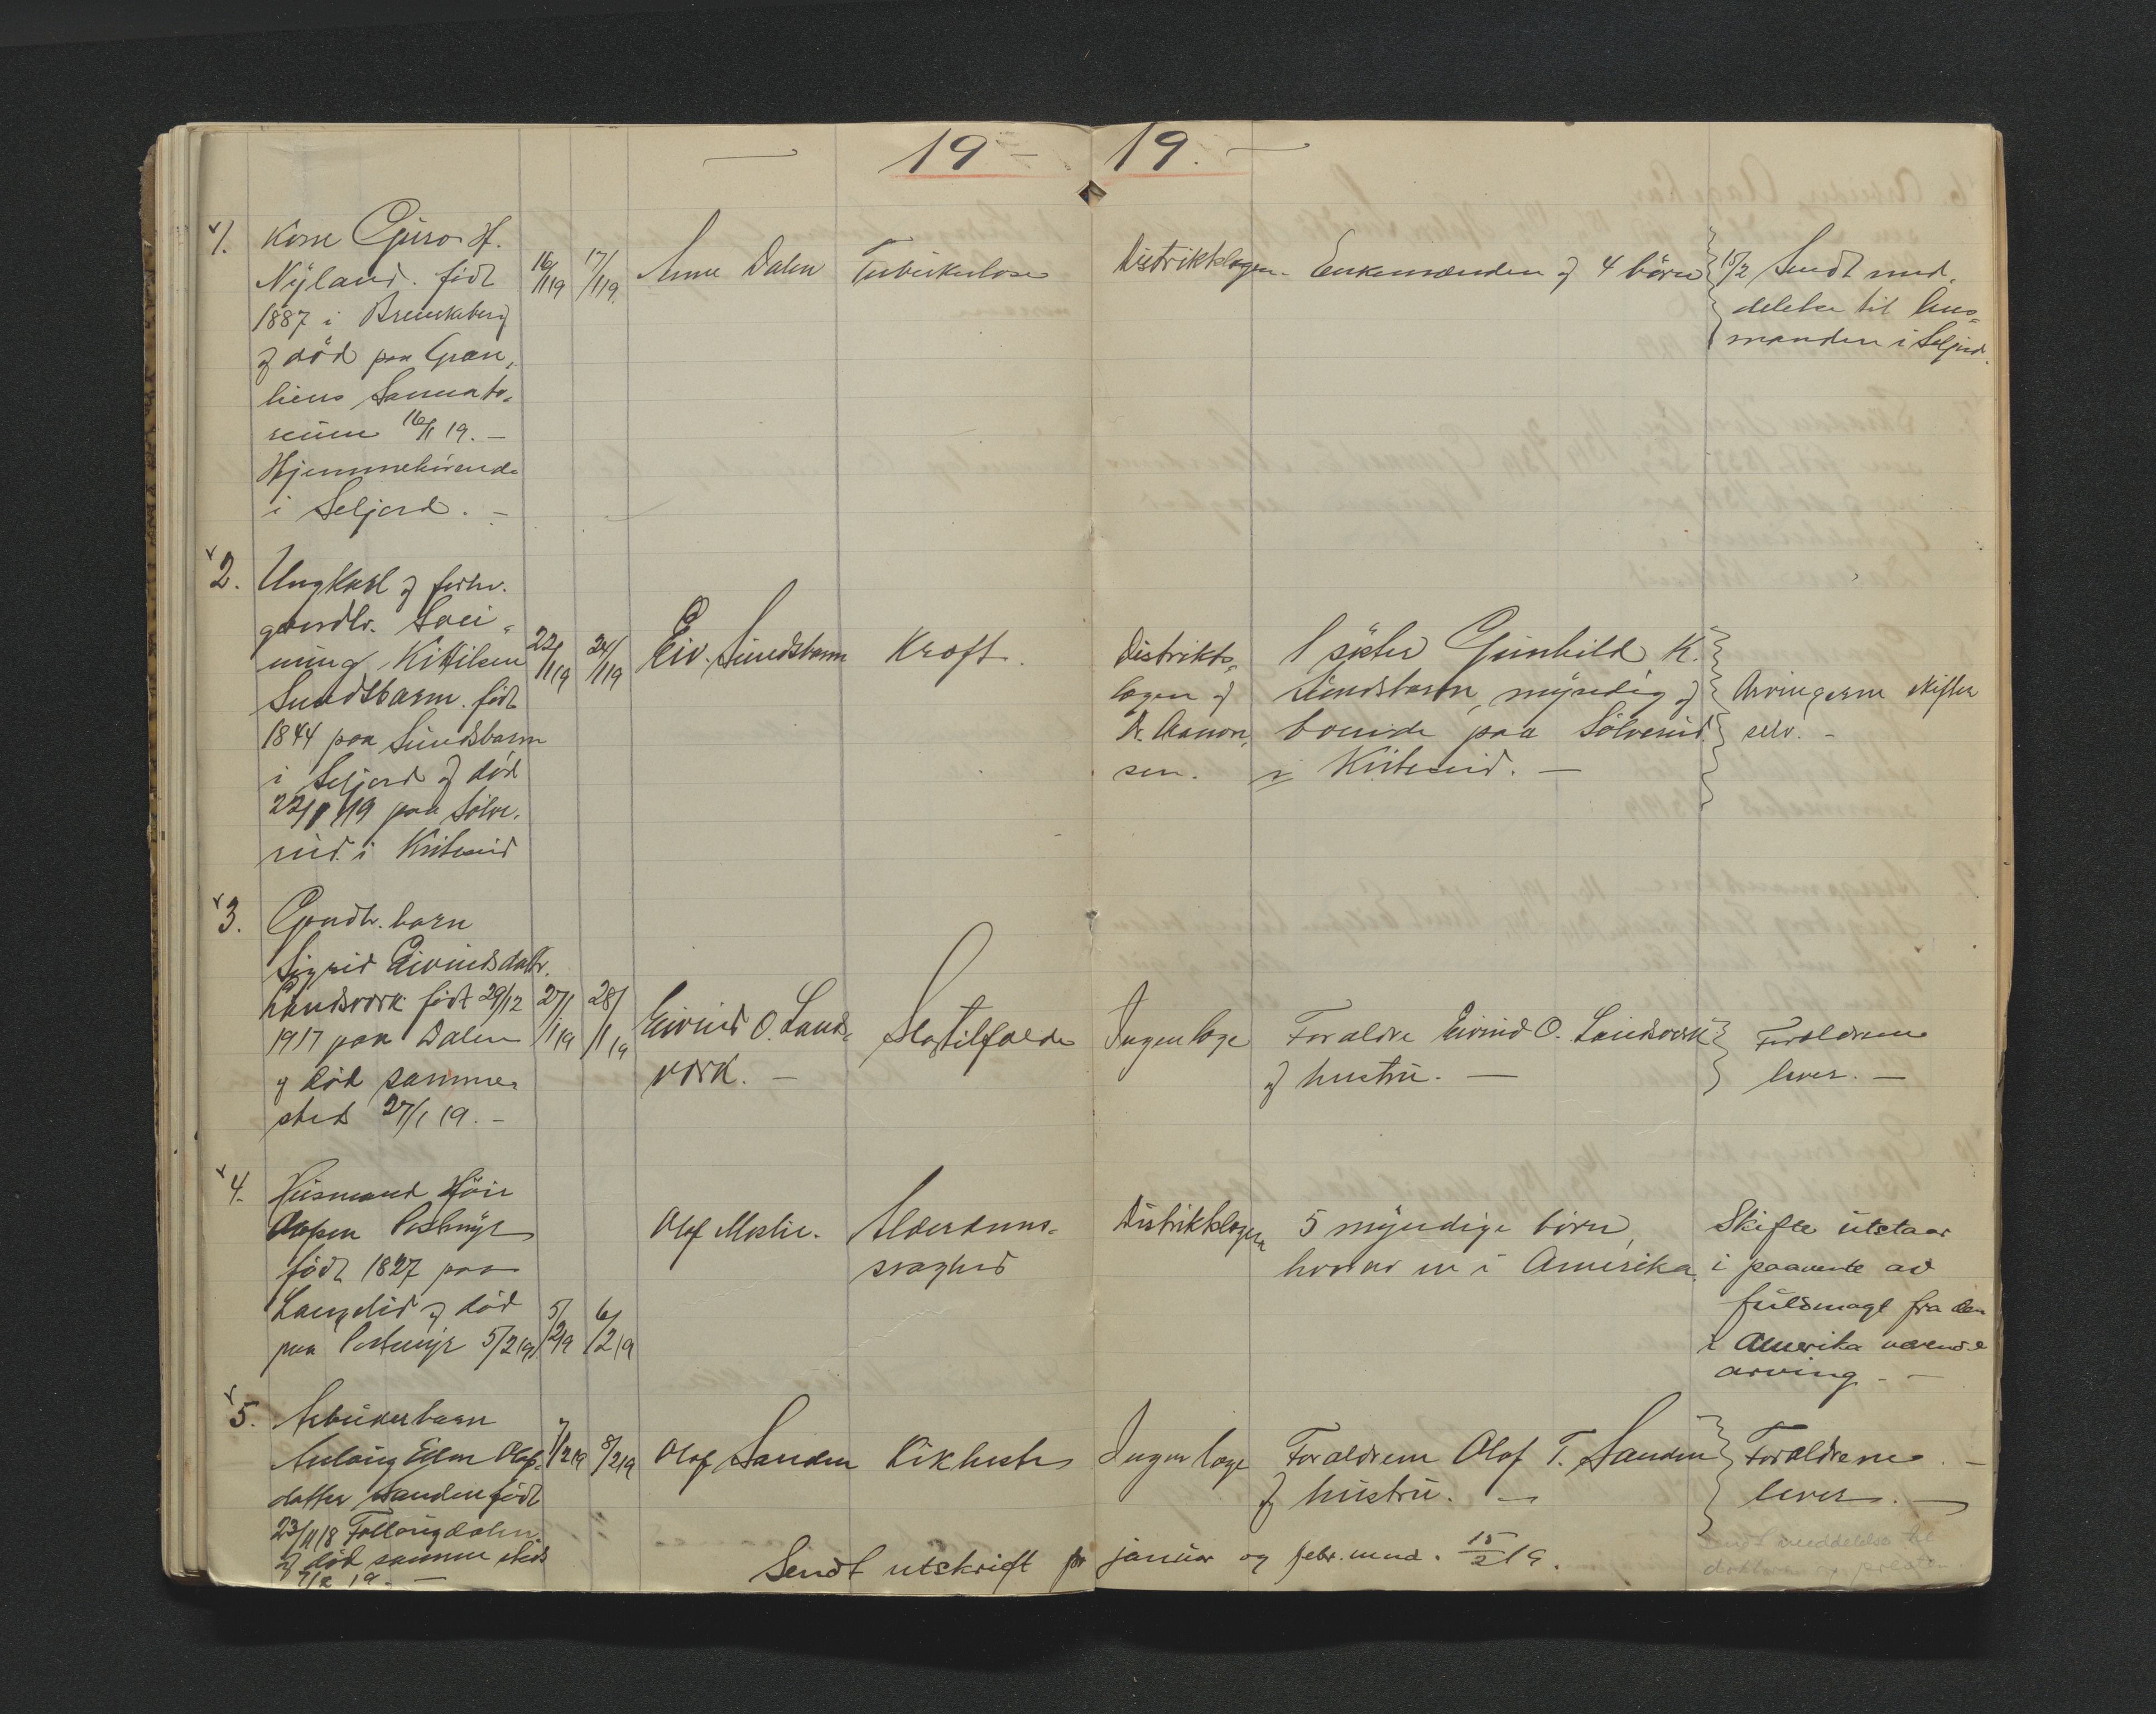 19 – 19. –
1. Kone Guro H.
Nyland. født
1887 i Brunkeberg
og død paa Gran-
liens Sanato-
rium 16/1 19. –
Hjemmehørende
i Seljord. –
16/1 19
17/1 19.
Anne Dalen
Tuberkulose
Distriktslægen.
Enkemanden og 4 børn
15/2 Sendt med-
delelse til lens-
manden i Seljord.
2. Ungkarl og forhv.
gaardbr. Svei-
nung Kittilsen
Sundsbarm. født
1844 paa Sundsbarm
i Seljord og død
22/1 19 paa Sølve-
rud. i Kviteseid
22/1 19
24/1 19
Eiv. Sundsbarm
Kræft.
Distrikts-
lægen og
Dr. Aanon-
sen.
1 søster Gunhild K.
Sundsbarm, myndig og
boende paa Sølverud.
i Kviteseid. –
Arvingerne skifter
selv. –
3. Gaardbr. barn
Sigrid Eivindsdattr.
Landsverk født 29/12
1917 paa Dalen
og død samme-
sted 27/1 19. –
27/1 19
28/1 19
Eivind O. Lands-
verk. –
Slagtilfælde
Ingen læge
Forældre Eivind O. Landsverk
og hustru. –
Forældrene
lever. –
4. Husmand Høie
Olavsen Postmyr
født 1827 paa
Langelid og død
paa Postmyr 5/2 19.
5/2 19
6/2 19
Olaf Moslie.
Alderdoms-
svaghed
Distriktslægen
5 myndige børn,
hvorav en i Amerika.
Skifte utstaar
i paavente av
fuldmagt fra den
i Amerika værende
arving. –
5. Arbeiderbarn
Aslaug Ellen Olafs-
datter Sanden født
23/11 18 Follaugdalen.
og død samme steds
7/2 19. –
7/2 19
8/2 19
Olaf Sanden
Kikhoste
Ingen læge
Forældrene Olaf T. Sanden
og hustru. –
Forældrene. –
lever. –
Sendt utskrift for januar og febr. mnd. 15/2 19.
Sendt meddelelse til
doktoren og presten